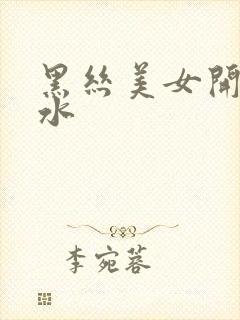 黑丝美女開
水
李宛蓉